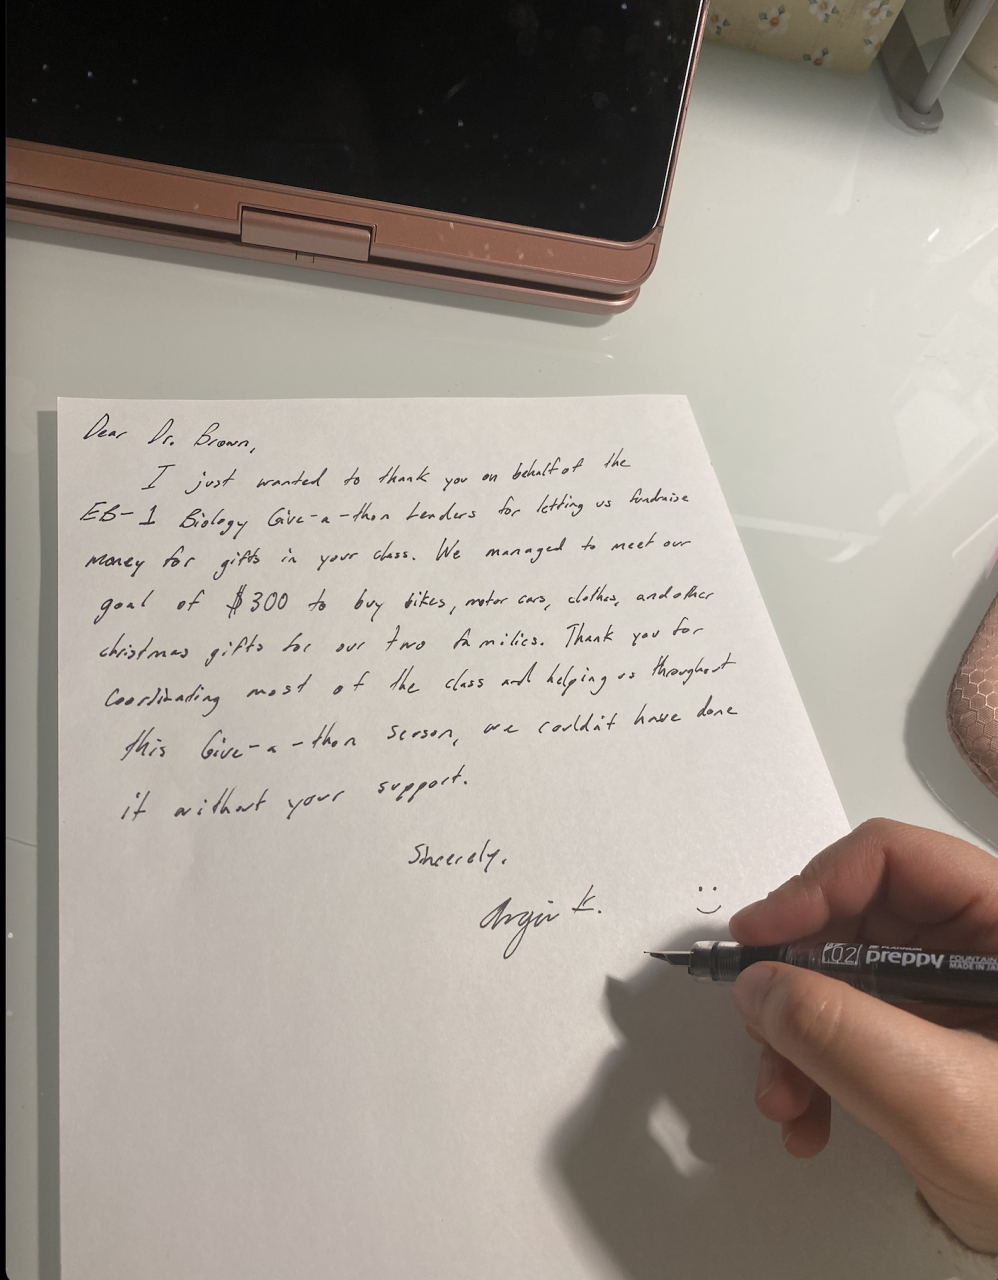 Dear Dr. Brown,
I just wanted to thank you on behalf of the
EB-1 Biology Give-a-thon Leaders for letting us fundraise
money for gifts in your class. We managed to meet our
goal of $300 to buy bikes, motor cars, clothes, and other
christmas gifts for our two families. Thank you for
coordinating most of the class and helping us throughout
this Give-a-thon season, we couldn't have done
it without your support.
Sincerely,
K.
:)
.02 preppy FOUNTAIN
MADE IN JA